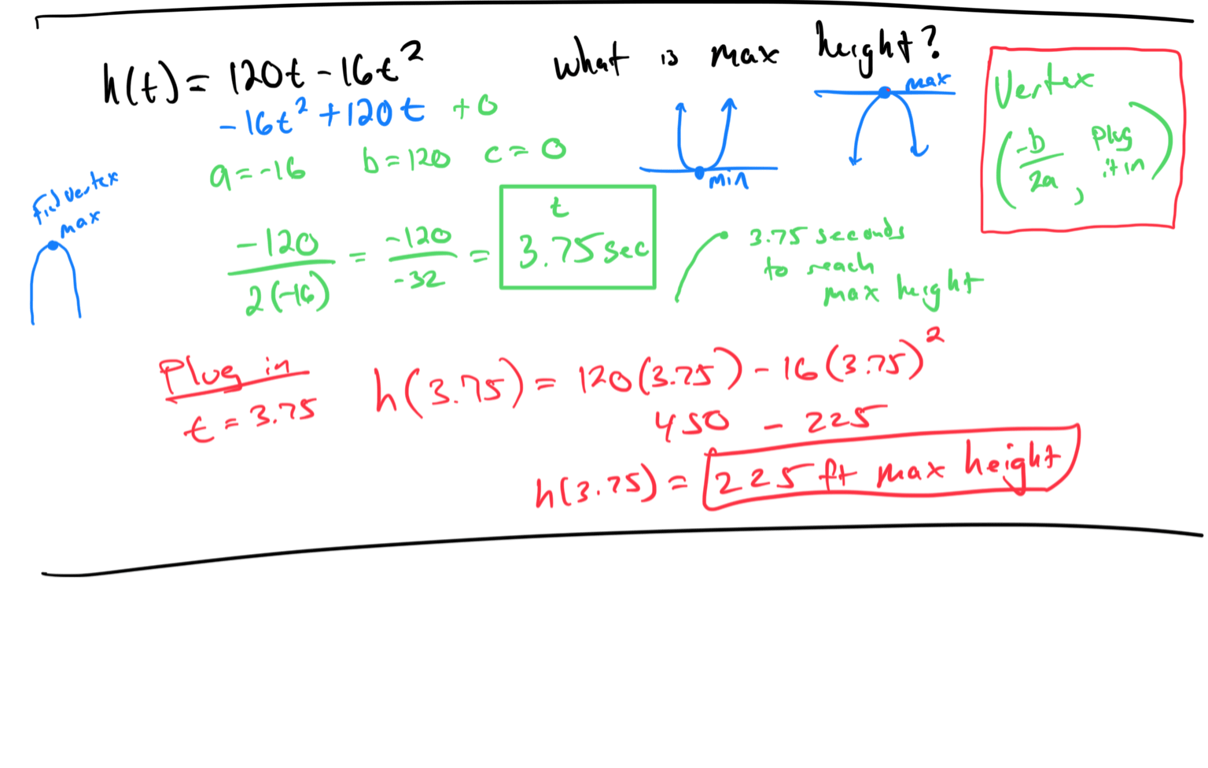 h(t) = 120t - 16t² What is max height?
-16t² + 120t + 0
a = -16 b = 120 c = 0
min
max
Vertex
(-b/2a, plug it in)
find vertex
max
-120/2(-16) = -120/-32 = 3.75 sec
t
3.75 seconds
to reach
max height
Plug in
t = 3.75
h(3.75) = 120(3.75) - 16(3.75)²
450 - 225
h(3.75) = 225 ft max height